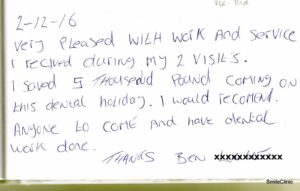 2-12-16
Very Pleased WITH WORK AND SERVICE
I recived during my 2 VISITS.
I SAVED 5 THOUSEND POUND COMING ON
this dental holiday. I would recoment.
Anyone to COME and have dental
work done.
THANKS BEN xxxxxxxxxxxx
SmileClinic